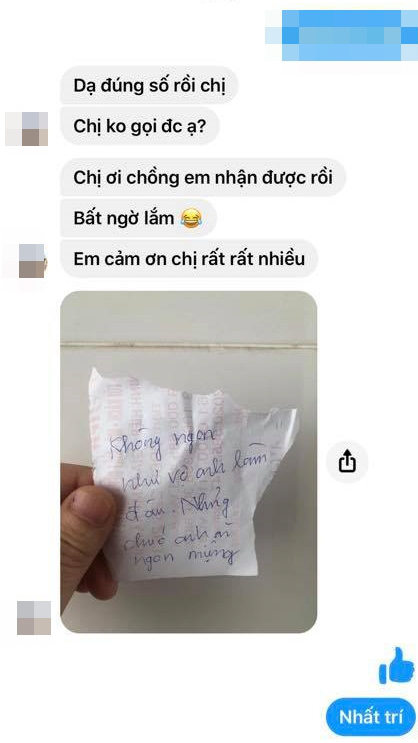 Dạ đúng số rồi chị
Chị ko gọi đc ạ?
Chị ơi chồng em nhận được rồi
Bất ngờ lắm 😂
Em cảm ơn chị rất rất nhiều
Không ngon
như vợ anh làm
đâu. Nhưng
chúc anh ăn
ngon miệng
Nhất trí